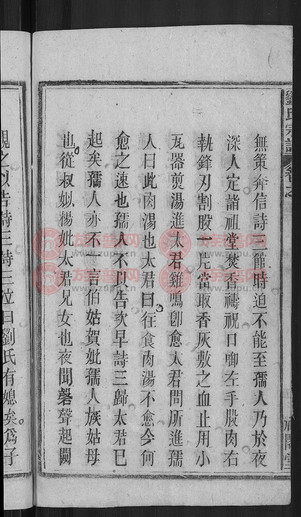 劉氏宗譜
無策奔信詩三館時迫不能至孺人乃於夜
深人定詣祖堂焚香禱祝口啣左手股肉右
執鋒刃割股一片當取香灰敷之血止用小
瓦器煎湯進太君雞鳴卽愈太君問所進孺
人曰此肉湯也太君曰往食肉湯不愈今何
愈之速也孺人不以告次早詩三歸太君已
起矣孺人亦不言伯姑賀妣孺人族姑母
也從叔姒楊妣太君兄女也夜聞磬聲起闚
覘之以告詩三詩三泣曰劉氏有媳矣爲子